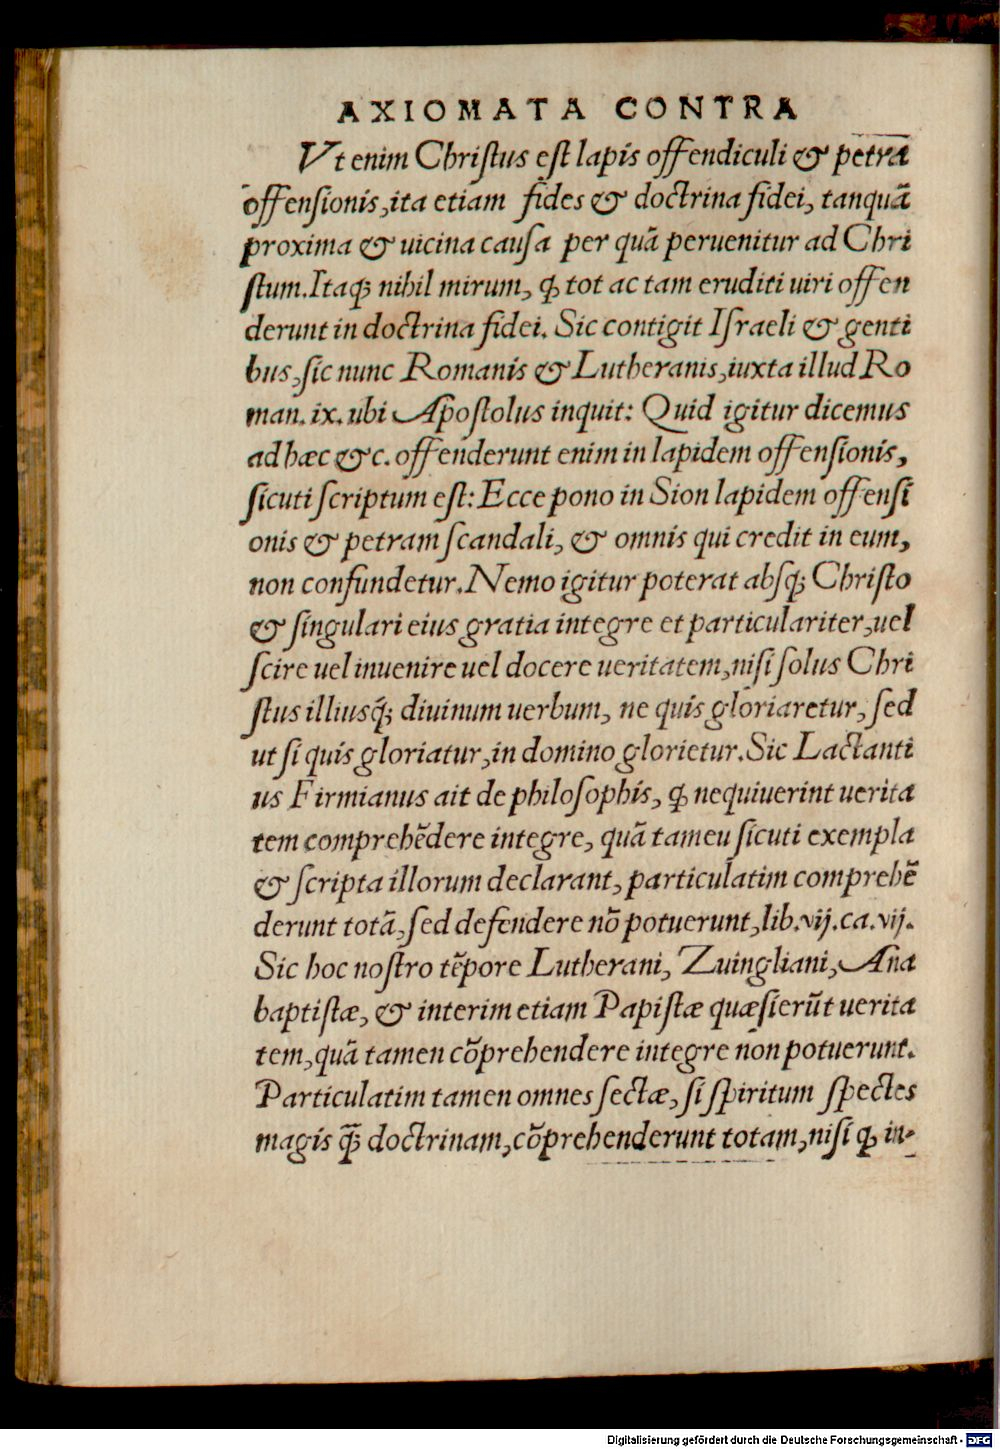 AXIOMATA CONTRA
Vt enim Chriſtus eſt lapis offendiculi & petra
offenſionis, ita etiam fides & doctrina fidei, tanquā
proxima & uicina cauſa per quā peruenitur ad Chri
ſtum. Itaq; nihil mirum, ꝙ tot ac tam eruditi uiri offen
derunt in doctrina fidei. Sic contigit Iſraeli & genti
bus, ſic nunc Romanis & Lutheranis, iuxta illud Ro
man. ix. ubi Apoſtolus inquit: Quid igitur dicemus
ad hæc &c. offenderunt enim in lapidem offenſionis,
ſicuti ſcriptum eſt: Ecce pono in Sion lapidem offenſi
onis & petram ſcandali, & omnis qui credit in eum,
non confundetur. Nemo igitur poterat abſq; Chriſto
& ſingulari eius gratia integre et particulariter, uel
ſcire uel inuenire uel docere ueritatem, niſi ſolus Chri
ſtus illiusq́; diuinum uerbum, ne quis gloriaretur, ſed
ut ſi quis gloriatur, in domino glorietur. Sic Lactanti
us Firmianus ait de philoſophis, ꝙ nequiuerint uerita
tem comprehēdere integre, quā tameu ſicuti exempla
& ſcripta illorum declarant, particulatim comprehē
derunt totā, ſed defendere nō potuerunt, lib. vij. ca. vij.
Sic hoc noſtro tēpore Lutherani, Zuingliani, Ana
baptiſtæ, & interim etiam Papiſtæ quæſierūt uerita
tem, quā tamen cōprehendere integre non potuerunt.
Particulatim tamen omnes ſectæ, ſi ſpiritum ſpectes
magis q̄̃ doctrinam, cōprehenderunt totam, niſi ꝙ in-
Digitalisierung gefördert durch die Deutsche Forschungsgemeinschaft - DFG